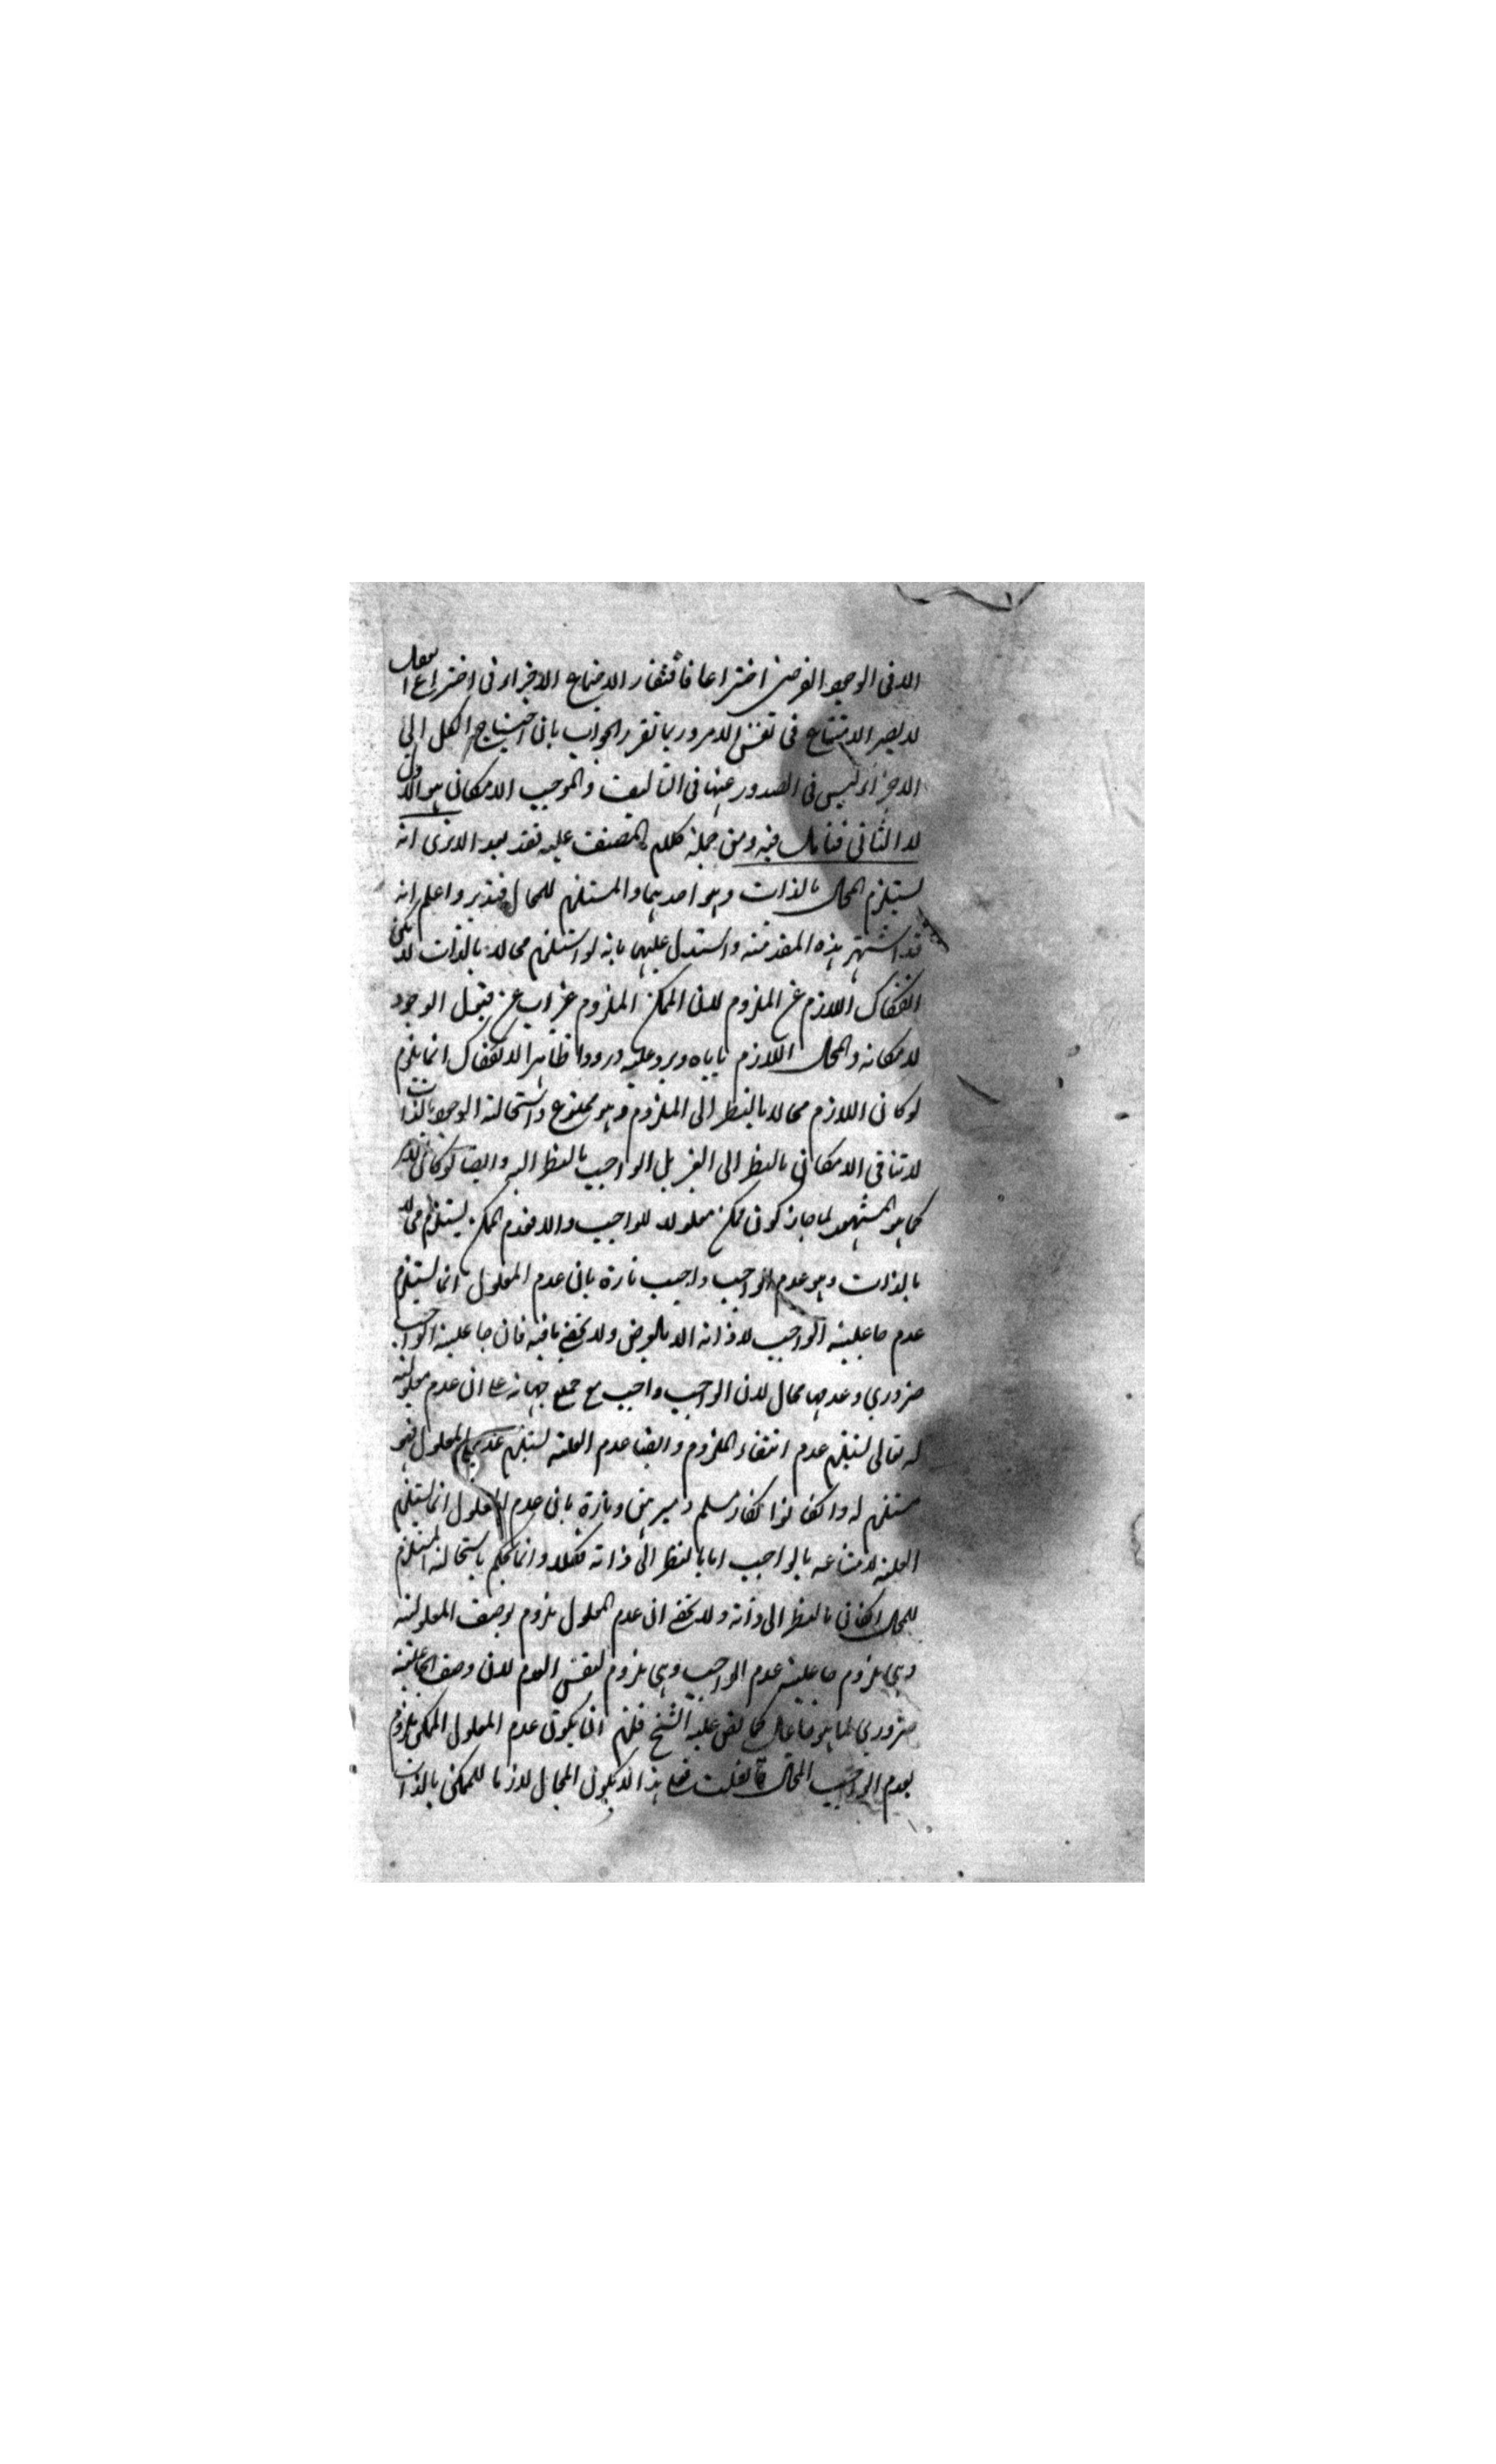 الا فى الوجود الفرضى اختراعا فافتقار الاجتماع الاجزاء فى اختراع العقل
لا يضر الامتناع فى نفس الامر وربما تقرر الجواب بان احتياج الكل الى
الاجزاء ليس فى الصدور عنها فى التاليف والموجب الامكان هو الاول
لا الثانى فتامل فيه ومن جملة كلام المصنف عليه نقد بعد الا ترى انه
يستلزم المحال بالذات وهو احدهما والمستلزم للمحال فتدبر واعلم انه
قد اشتهر هذه المقدمة واستدل عليها بانه لو استلزم محالا بالذات لامكن
انفكاك اللازم عن الملزوم لان الممكن الملزوم غير اب عن قبول الوجود
لامكانه والمحال اللازم ياباه ويرد عليه ورودا ظاهرا الانفكاك انما يلزم
لو كان اللازم محالا بالنظر الى الملزوم وهو ممنوع واستحالة الوجود بالذات
لا تنافى الامكان بالنظر الى الغير بل الواجب بالنظر اليه وايضا لو كان الامر
كما هو المشهور لما جاز كون ممكن معلولا للواجب والا فعدم الممكن يستلزم محالا
بالذات وهو عدم الواجب واجيب تارة بان عدم المعلول انما يستلزم
عدم جاعلية الواجب لا ذاته الا بالعرض ولا يخفى ما فيه فان جاعلية الواجب
ضرورى وعدمها محال لان الواجب واجب مع جميع جهاته على ان عدم معلولية
له تعالى يستلزم عدم انتفاء الملزوم وايضا عدم العلة يستلزم عدم المعلول فهو
مستلزم له والانكار مسلم وتارة بان عدم المعلول انما يستلزم
العلة لامتناعه بالواجب اما بالنظر الى ذاته فكلا وانما نحكم باستحالة المستلزم
للمحال الكائن بالنظر الى ذاته ولا يخفى ان عدم المعلول ملزوم لوصف المعلولية
وهى ملزوم جاعلية عدم الواجب وهى ملزوم لنفس العدم لان وصف الجاعلية
ضرورى لما هو فاعل كما نص عليه الشيخ فلزم ان يكون عدم المعلول الممكن ملزوم
لعدم الواجب المحال فان قلت فعلى هذا لا يكون المحال لازما للممكن بالذات